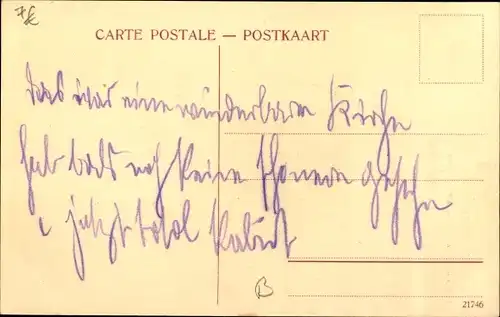 7€
CARTE POSTALE — POSTKAART
Das war eine wunderbare Kirche
hab bald noch keine schönere gesehn
u jetzt total kabut
B
21746